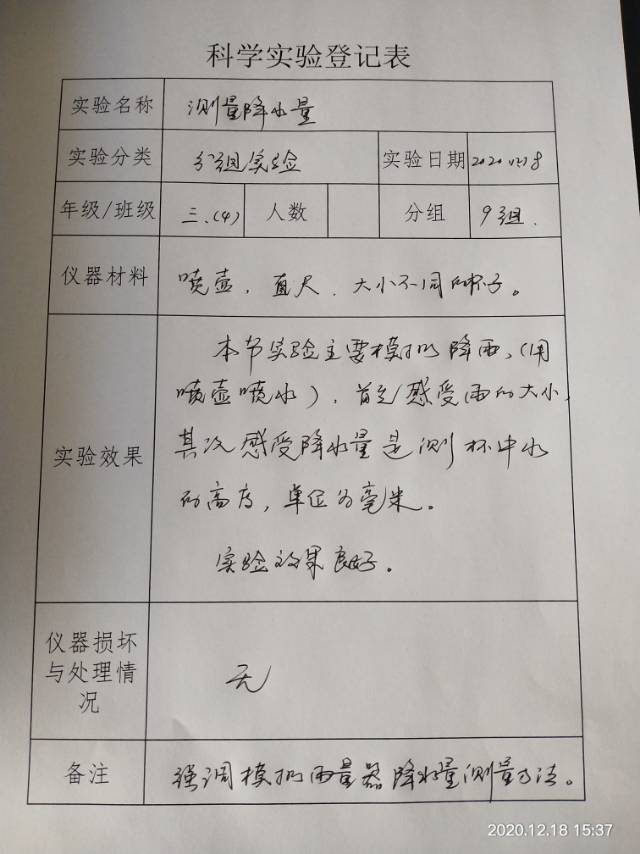 科学实验登记表
实验名称 测量降水量
实验分类 分组实验 实验日期 2020.12.18
年级/班级 三.(4) 人数 分组 9组.
仪器材料 喷壶、直尺、大小不同的杯子。
本节实验主要模拟降雨,(用
喷壶喷水),首先感受雨的大小,
实验效果 其次感受降水量是测杯中水
的高度,单位为毫米。
实验效果良好。
仪器损坏
与处理情
况
无
备注 强调模拟雨量器降水量测量方法。
2020.12.18 15:37